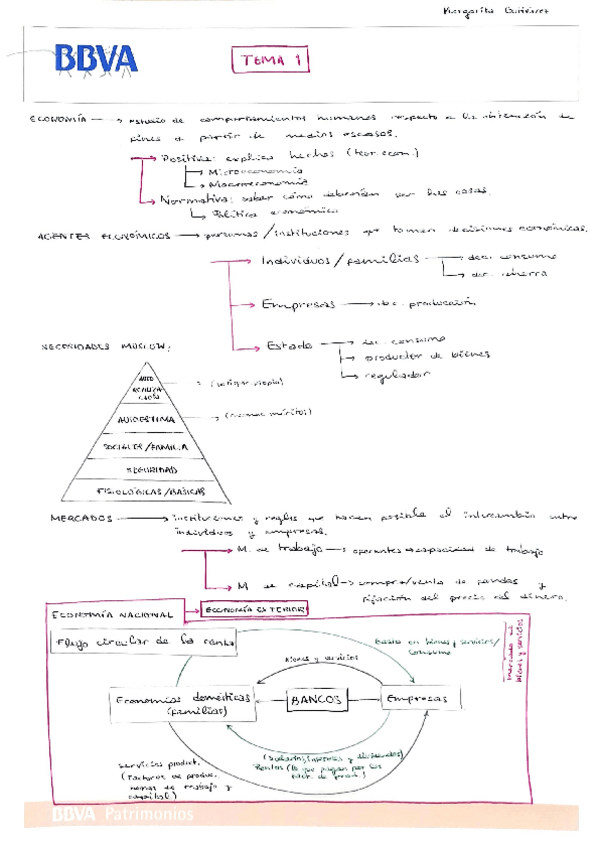 Margarita Gutiérrez
BBVA
TEMA 1
ECONOMÍA → estudio de comportamientos humanos respecto a la obtención de
fines a partir de medios escasos.
→ Positiva: explica hechos (teor. econ.)
→ Microeconomía
→ Macroeconomía
→ Normativa: saber cómo deberían ser las cosas.
→ Política económica
AGENTES ECONÓMICOS → personas/instituciones que toman decisiones económicas.
→ Individuos/familias → dec. consumo
→ dec. ahorro
→ Empresas → dec. producción
→ Estado → dec. consumo
→ productor de bienes
→ regulador
NECESIDADES MASLOW:
AUTO
REALIZA-
CIÓN
AUTOESTIMA → (méritos)
SOCIALES/FAMILIA
SEGURIDAD
FISIOLÓGICAS/BÁSICAS
MERCADOS → instituciones y reglas que hacen posible el intercambio entre
individuos y empresas.
→ M. de trabajo → capacidad de trabajo
→ M. de capital → compra/venta de fondos y
fijación del precio del dinero.
ECONOMÍA NACIONAL → ECONOMÍA EXTERIOR
Flujo circular de la renta
Gasto en bienes y servicios/
consumo
mercado de
bienes y servicios
Bienes y servicios
Economías domésticas
(familias)
BANCOS
Empresas
Servicios product.
(Factores de produc.
horas de trabajo y
capital)
(Salarios, intereses y dividendos)
Rentas (lo que pagan por los
fact. de prod.)
BBVA Patrimonios